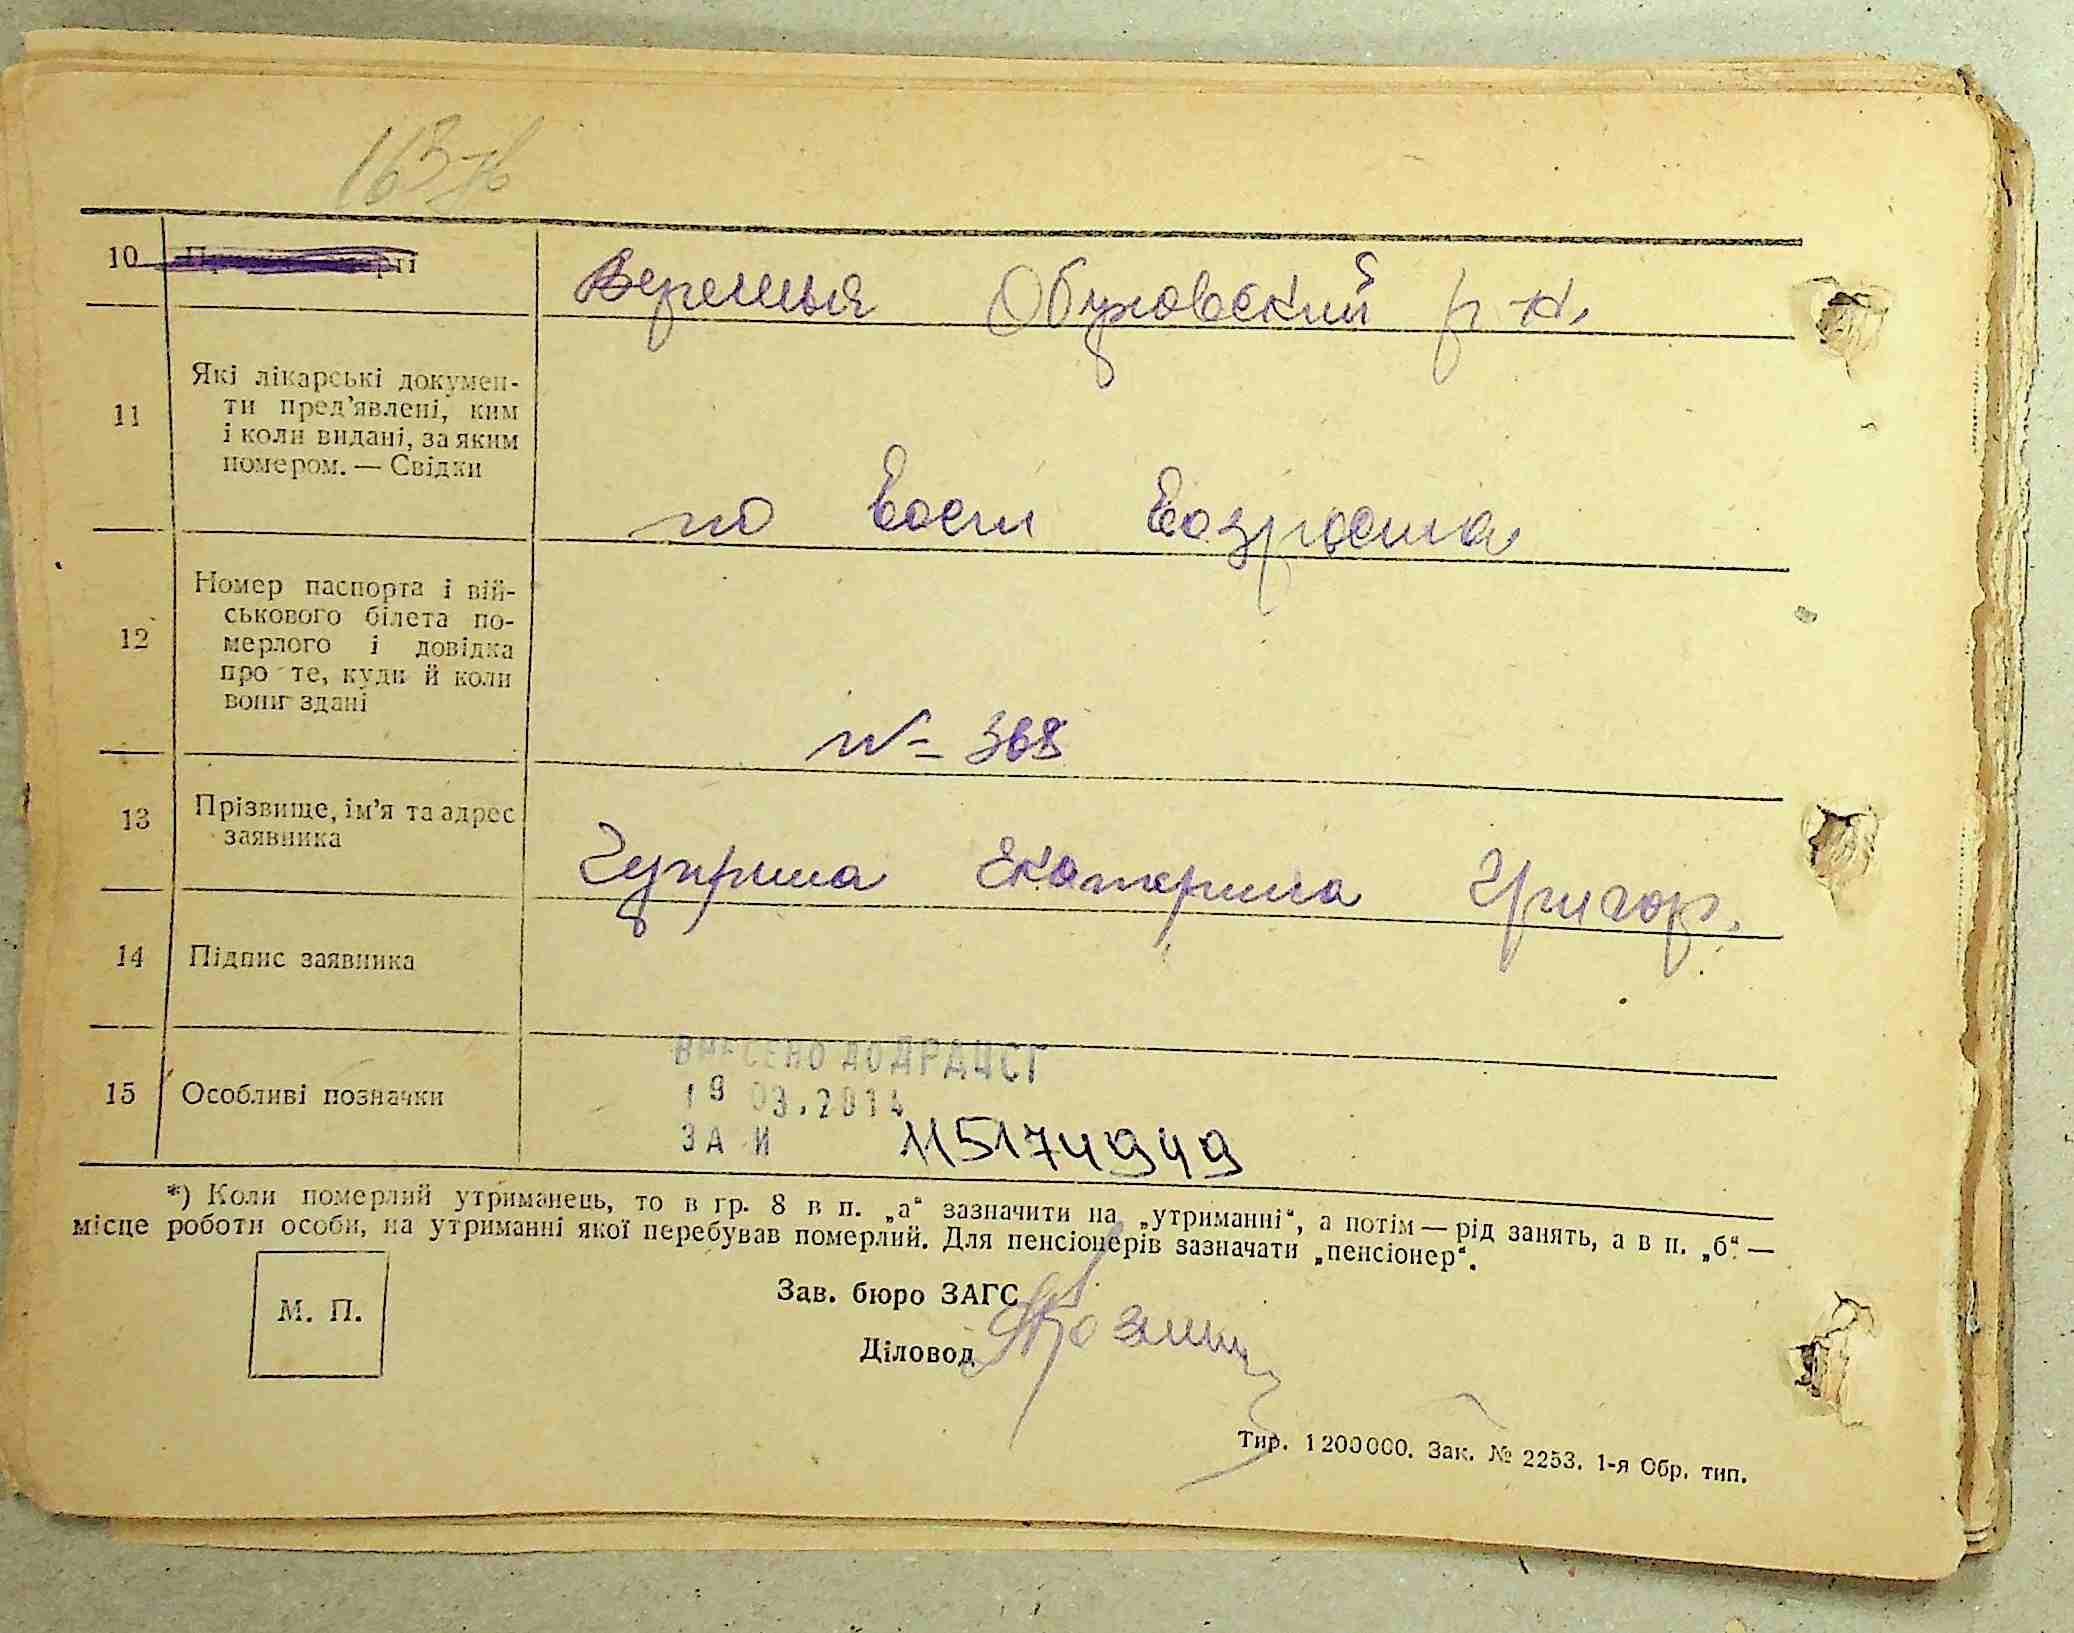 10
Веремья Обуховский р-н.
11 Які лікарські докумен-
ти пред'явлені, ким
і коли видані, за яким
номером. — Свідки
по возрастa
12 Номер паспорта і вій-
ськового білета по-
мерлого і довідка
про те, куди й коли
вони здані
№ 368
13 Прізвище, ім'я та адрес
заявника
Чуприна Екатерина Григор.
14 Підпис заявника
15 Особливі позначки
ВНЕСЕНО ДО ДРАЦСГ
19 03.2014
ЗА И 115174949
*) Коли померлий утриманець, то в гр. 8 в п. „а“ зазначити на „утриманні“, а потім — рід занять, а в п. „б“ —
місце роботи особи, на утриманні якої перебував померлий. Для пенсіонерів зазначати „пенсіонер“.
М. П.
Зав. бюро ЗАГС
Діловод
Тир. 1200000. Зак. № 2253. 1-я Обр. тип.